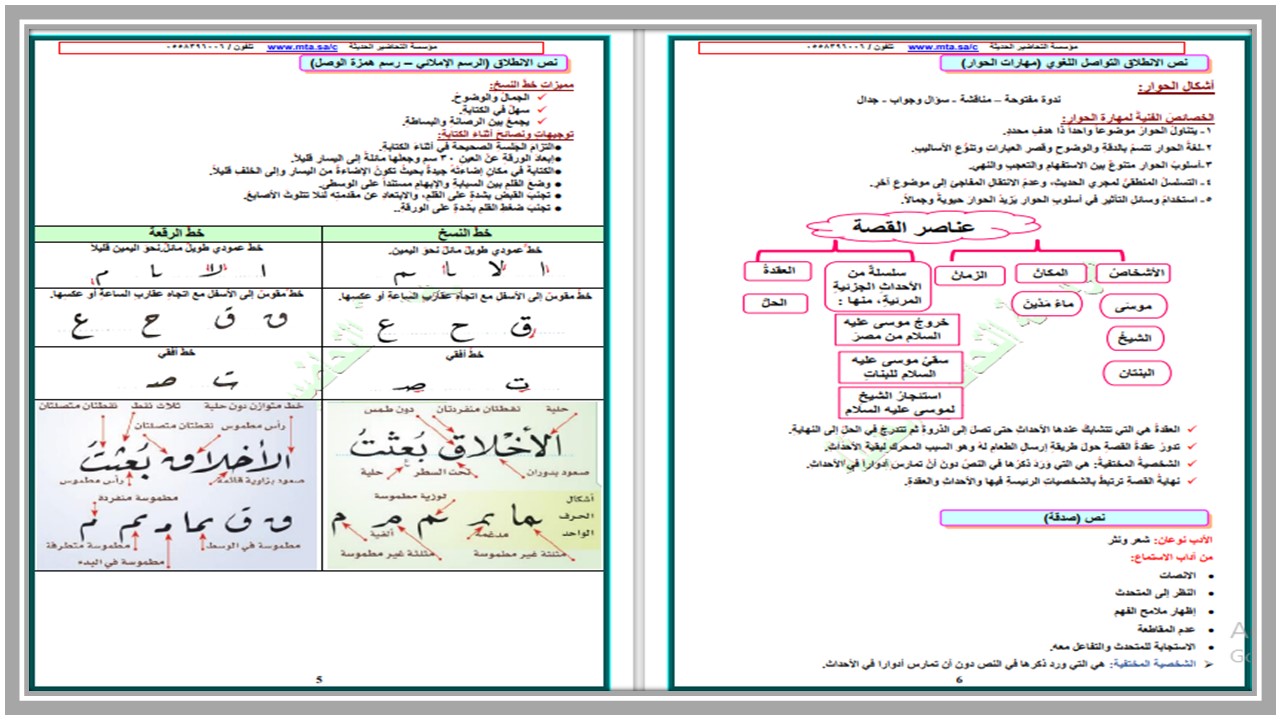 مؤسسة التحاضير الحديثة www.mta.sa/c تلفون / ٠٥٥٨٣٩٦٠٠٦
نص الانطلاق التواصل اللغوي (مهارات الحوار)
أشكال الحوار:
ندوة مفتوحة – مناقشة - سؤال وجواب - جدال
الخصائص الفنية لمهارة الحوار:
١- يتناول الحوار موضوعاً واحداً ذا هدف محدد.
٢- لغة الحوار تتسم بالدقة والوضوح وقصر العبارات وتنوع الأساليب.
٣- أسلوب الحوار متنوع بين الاستفهام والتعجب والنهي.
٤- التسلسل المنطقي لمجري الحديث، وعدم الانتقال المفاجئ إلى موضوع آخر.
٥- استخدام وسائل التأثير في أسلوب الحوار يزيد الحوار حيوية وجمالاً.
عناصر القصة
الأشخاص
المكان
الزمان
سلسلة من الأحداث الجزئية المرئية، منها :
العقدة
موسى
ماء مدين
الحل
الشيخ
خروج موسى عليه السلام من مصر
البنتان
سقي موسى عليه السلام للبنات
استئجار الشيخ لموسى عليه السلام
العقدة هي التي تتشابك عندها الأحداث حتى تصل إلى الذروة ثم تتدرج في الحل إلى النهاية.
تدور عقدة القصة حول طريقة إرسال الطعام له وهو السبب المحرك لبقية الأحداث.
الشخصية المختفية: هي التي ورد ذكرها في النص دون أن تمارس أدوارا في الأحداث.
نهاية القصة ترتبط بالشخصيات الرئيسة فيها والأحداث والعقدة.
نص (صدقة)
الأدب نوعان: شعر ونثر
من آداب الاستماع:
الانصات
النظر إلى المتحدث
إظهار ملامح الفهم
عدم المقاطعة
الاستجابة للمتحدث والتفاعل معه.
الشخصية المختفية: هي التي ورد ذكرها في النص دون أن تمارس أدوارا في الأحداث.
6
مؤسسة التحاضير الحديثة www.mta.sa/c تلفون / ٠٥٥٨٣٩٦٠٠٦
نص الانطلاق (الرسم الإملائي – رسم همزة الوصل)
مميزات خط النسخ:
الجمال والوضوح.
سهل في الكتابة.
يجمع بين الرصانة والبساطة.
توجيهات ونصائح أثناء الكتابة:
التزام الجلسة الصحيحة في أثناء الكتابة.
إبعاد الورقة عن العين ٣٠ سم وجعلها مائلة إلى اليسار قليلاً.
الكتابة في مكان إضاءته جيدة بحيث تكون الإضاءة من اليسار وإلى الخلف قليلاً.
وضع القلم بين السبابة والإبهام مستنداً على الوسطى.
تجنب القبض بشدة على القلم، والابتعاد عن مقدمته لئلا تتلوث الأصابع.
تجنب ضغط القلم بشدة على الورقة..
خط النسخ
خط الرقعة
خط عمودي طويل مائل نحو اليمين.
خط عمودي طويل مائل نحو اليمين قليلاً
ا لا با م
ا لا با م
خط مقوس إلى الأسفل مع اتجاه عقارب الساعة أو عكسها.
خط مقوس إلى الأسفل مع اتجاه عقارب الساعة أو عكسها.
ق ح ع
ق ق ح ع
خط أفقي
خط أفقي
ت ص
ت صد
حلية نقطتان منفردتان دون طمس
الأخلاق بُعثتُ
صعود بدوران تحت السطر حلية
أشكال الحرف الواحد
لوزية مطموسة
مدغمة ألفية
مثلثة غير مطموسة مثلثة غير مطموسة
خط متوازن دون حلية ثلاث نقط نقطتان متصلتان
رأس مطموس نقطتان متصلتان
الأخلاق بُعثتُ
صعود بزاوية قائمة رأس مطموس
مطموسة منفردة
مطموسة في الوسط مطموسة متطرفة
مطموسة في البدء
5